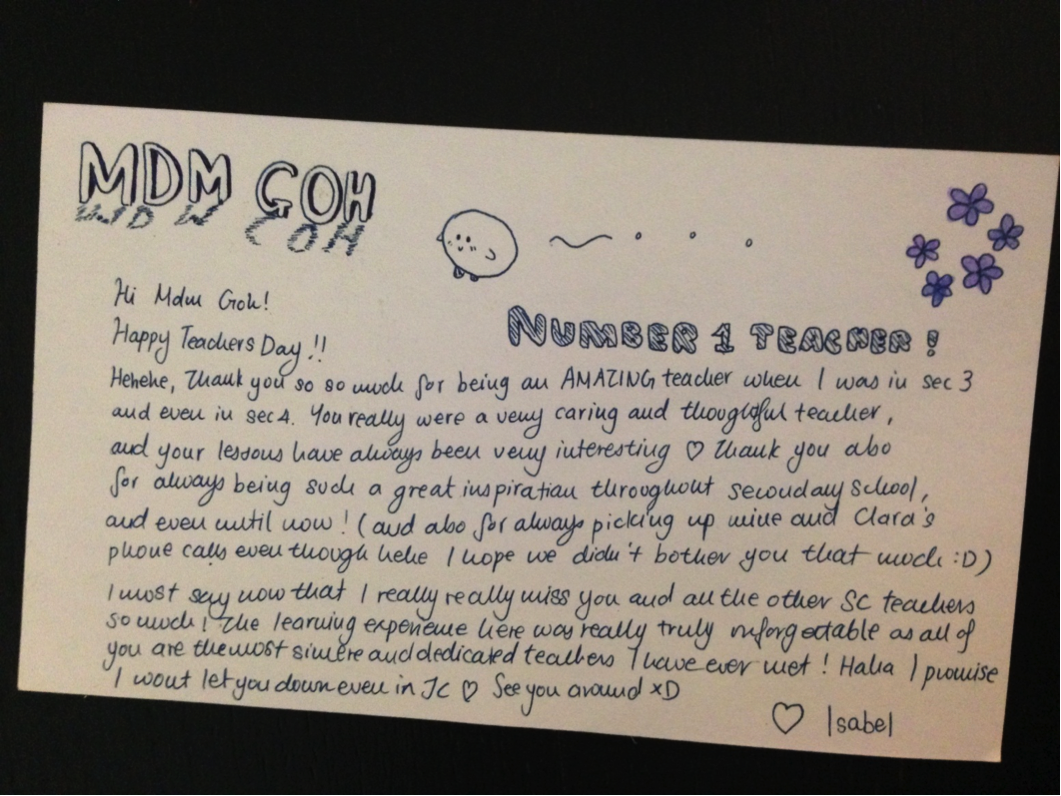 MDM GOH
Hi Mdm Goh!
Happy Teachers Day!!
NUMBER 1 TEACHER!
Hehehe, Thank you so so much for being an AMAZING teacher when I was in sec 3
and even in sec 4. You really were a very caring and thoughtful teacher,
and your lessons have always been very interesting ♡ Thank you also
for always being such a great inspiration throughout secondary school,
and even until now! (and also for always picking up mine and Clara's
phone calls even though hehe I hope we didn't bother you that much :D)
I must say now that I really really miss you and all the other SC teachers
so much! The learning experience here was really truly unforgettable as all of
you are the most sincere and dedicated teachers I have ever met! Haha I promise
I wont let you down even in JC ♡ See you around xD
♡ Isabel